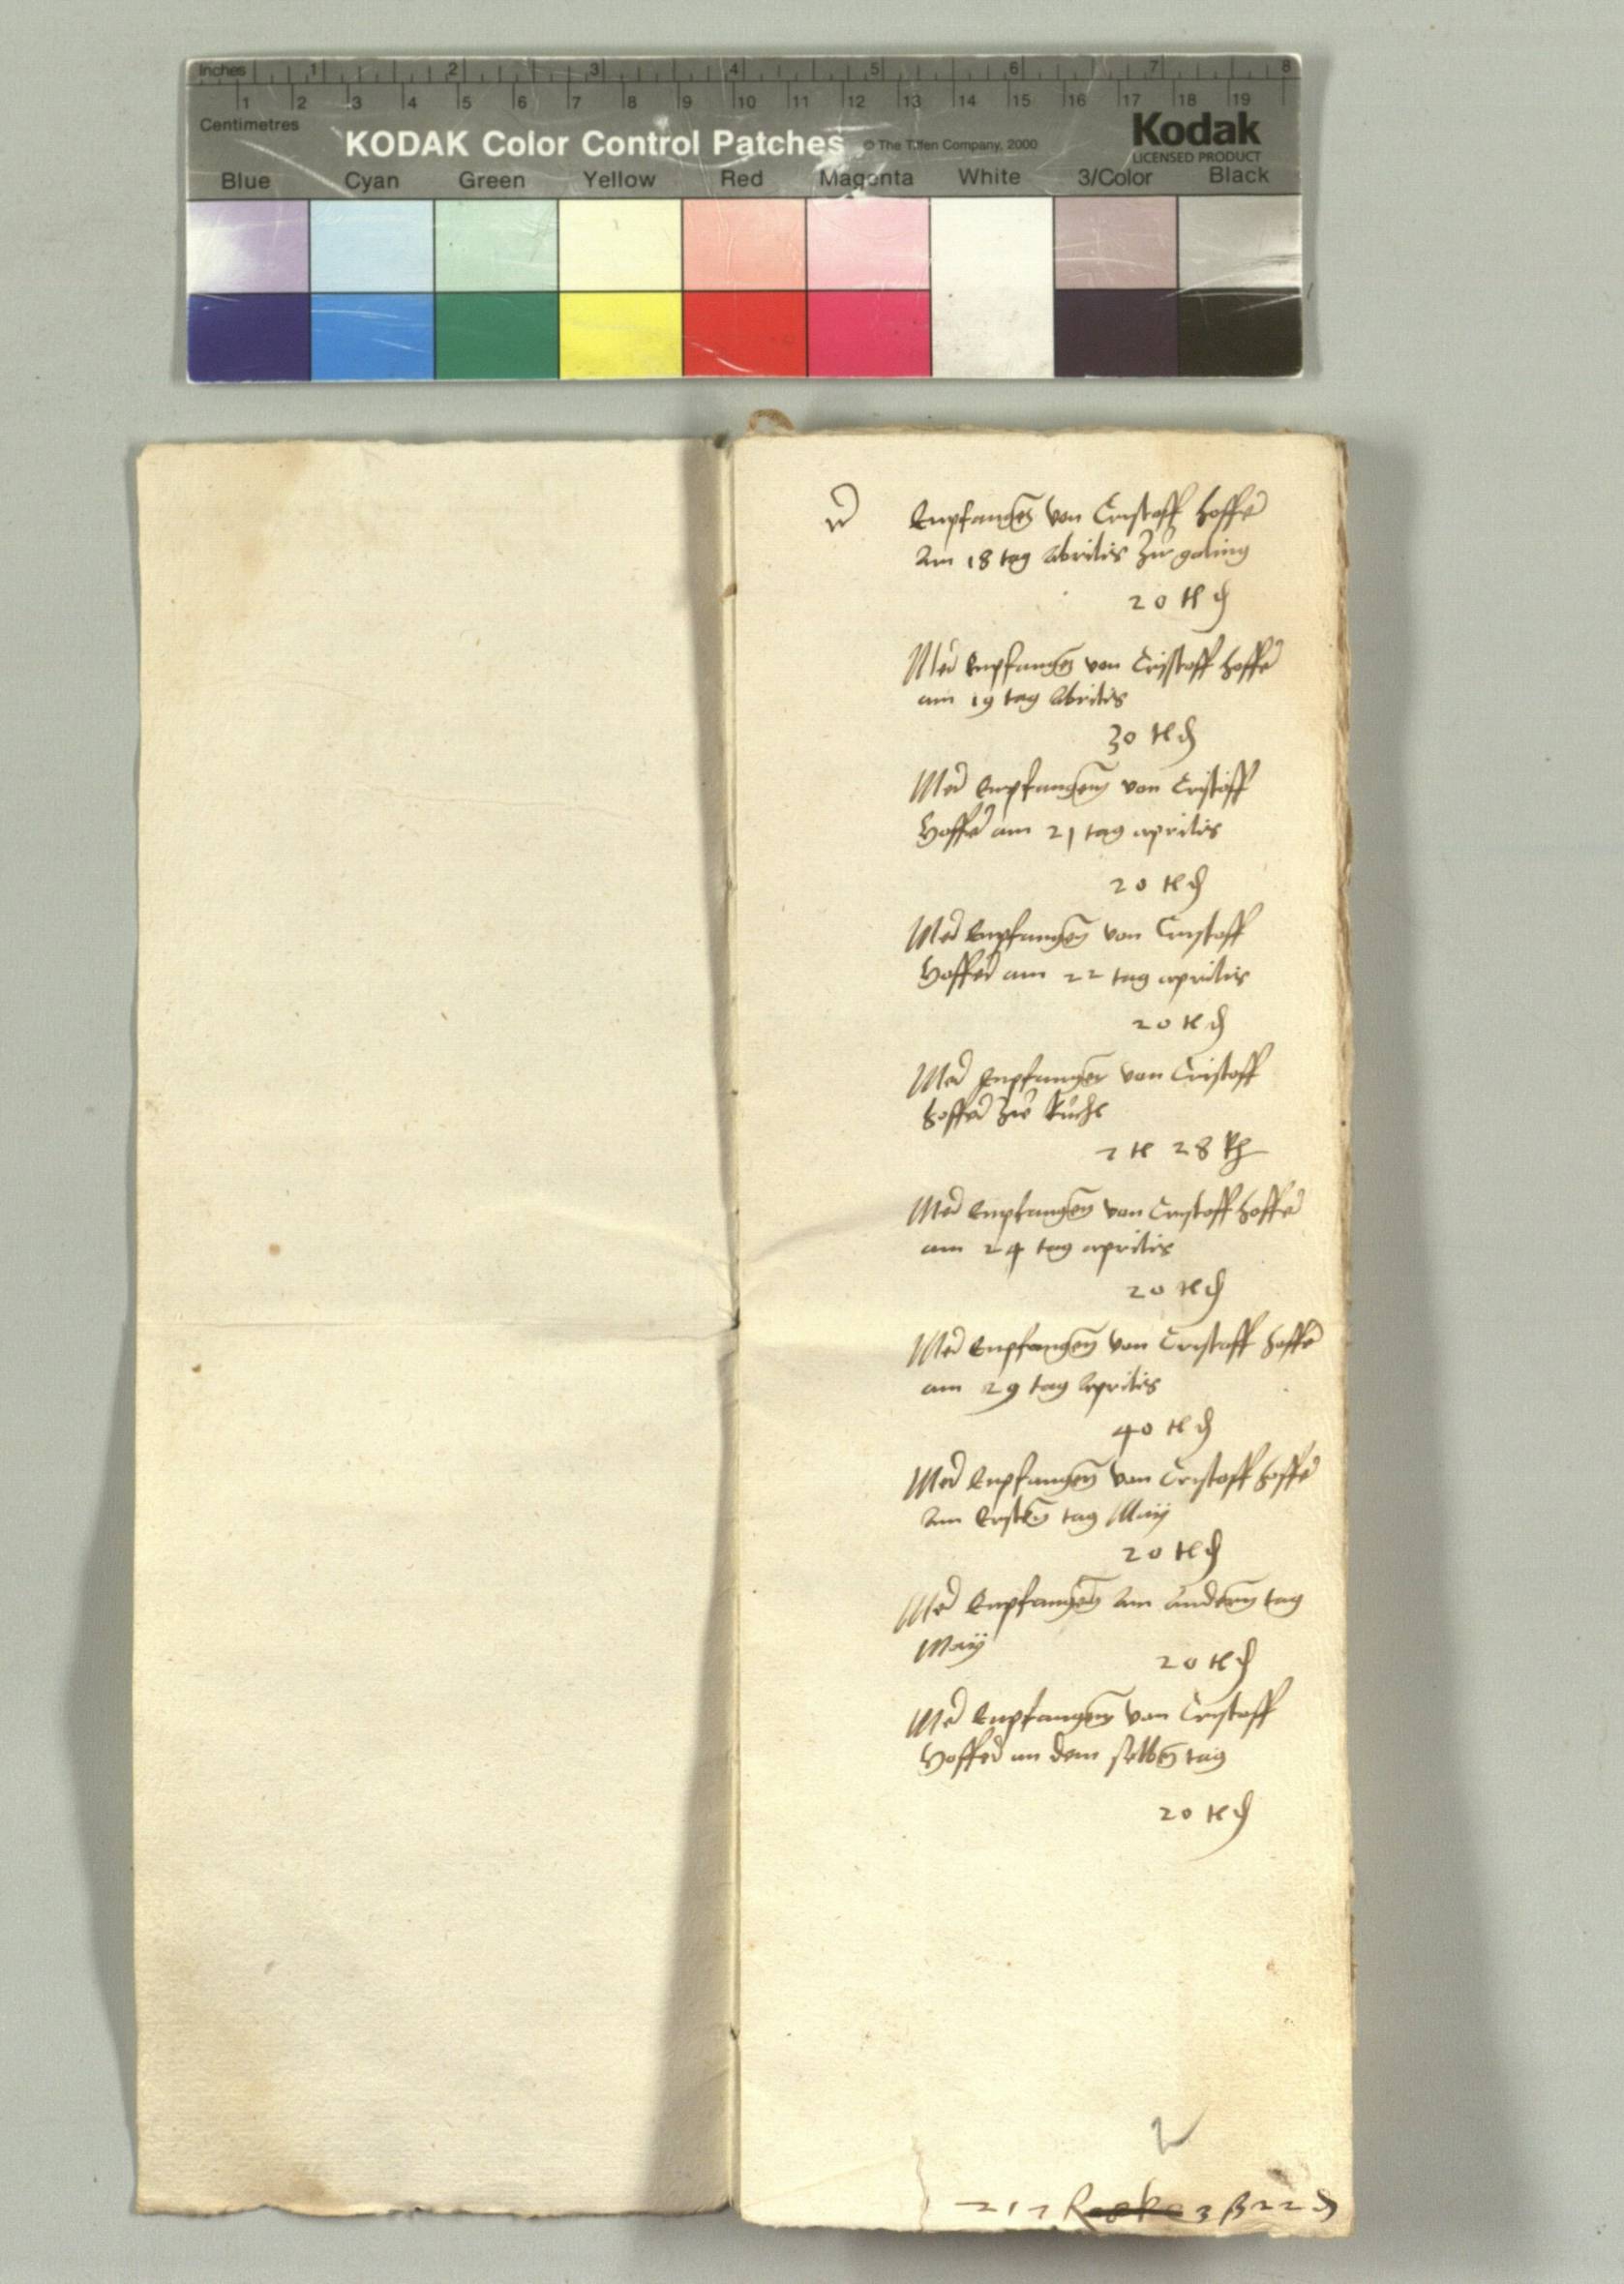 Inches 1 2 3 4 5 6 7 8
1 2 3 4 5 6 7 8 9 10 11 12 13 14 15 16 17 18 19
Centimetres
KODAK Color Control Patches © The Tiffen Company, 2000 Kodak
LICENSED PRODUCT
Blue Cyan Green Yellow Red Magenta White 3/Color Black
Enpfangen von Cristoff Hoffer
Am 18 tag Abrilis zu
20 tl d
Mer Enpfangen von Cristoff hoffer
am 19 tag Abrilis
30 tl d
Mer Enpfangen von Cristoff
Hoffer am 21 tag aprilis
20 tl d
Mer Enpfangen von Cristoff
Hoffer am 22 tag aprilis
20 tl d
Mer Enpfangen von Cristoff
hoffer
2 tl 28
Mer Enpfangen von Cristoff hoffer
am 24 tag aprilis
20 tl d
Mer Enpfangen von Cristoff hoffer
am 29 tag Aprilis
40 tl d
Mer Enpfangen von Cristoff hoffer
Am Ersten tag Maÿ
20 tl d
Mer Enpfangen Am Andern tag
Maÿ
20 tl d
Mer Enpfangen von Cristoff
Hoffer an dem selben tag
20 tl d
212 R 3 ß 22 d